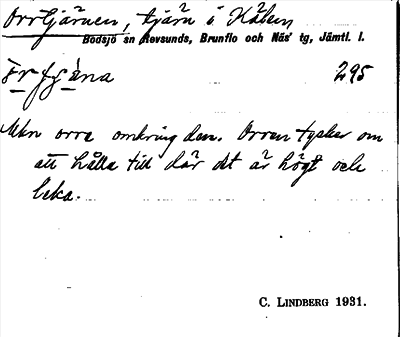 Orrtjärnen, tjärn i Hålen
Bodsjö sn Revsunds, Brunflo och Näs' tg, Jämtl. l.
295
Mkn orra omkring den. Orren tycker om
att hålla till där det är högt och
leka.
C. LINDBERG 1931.